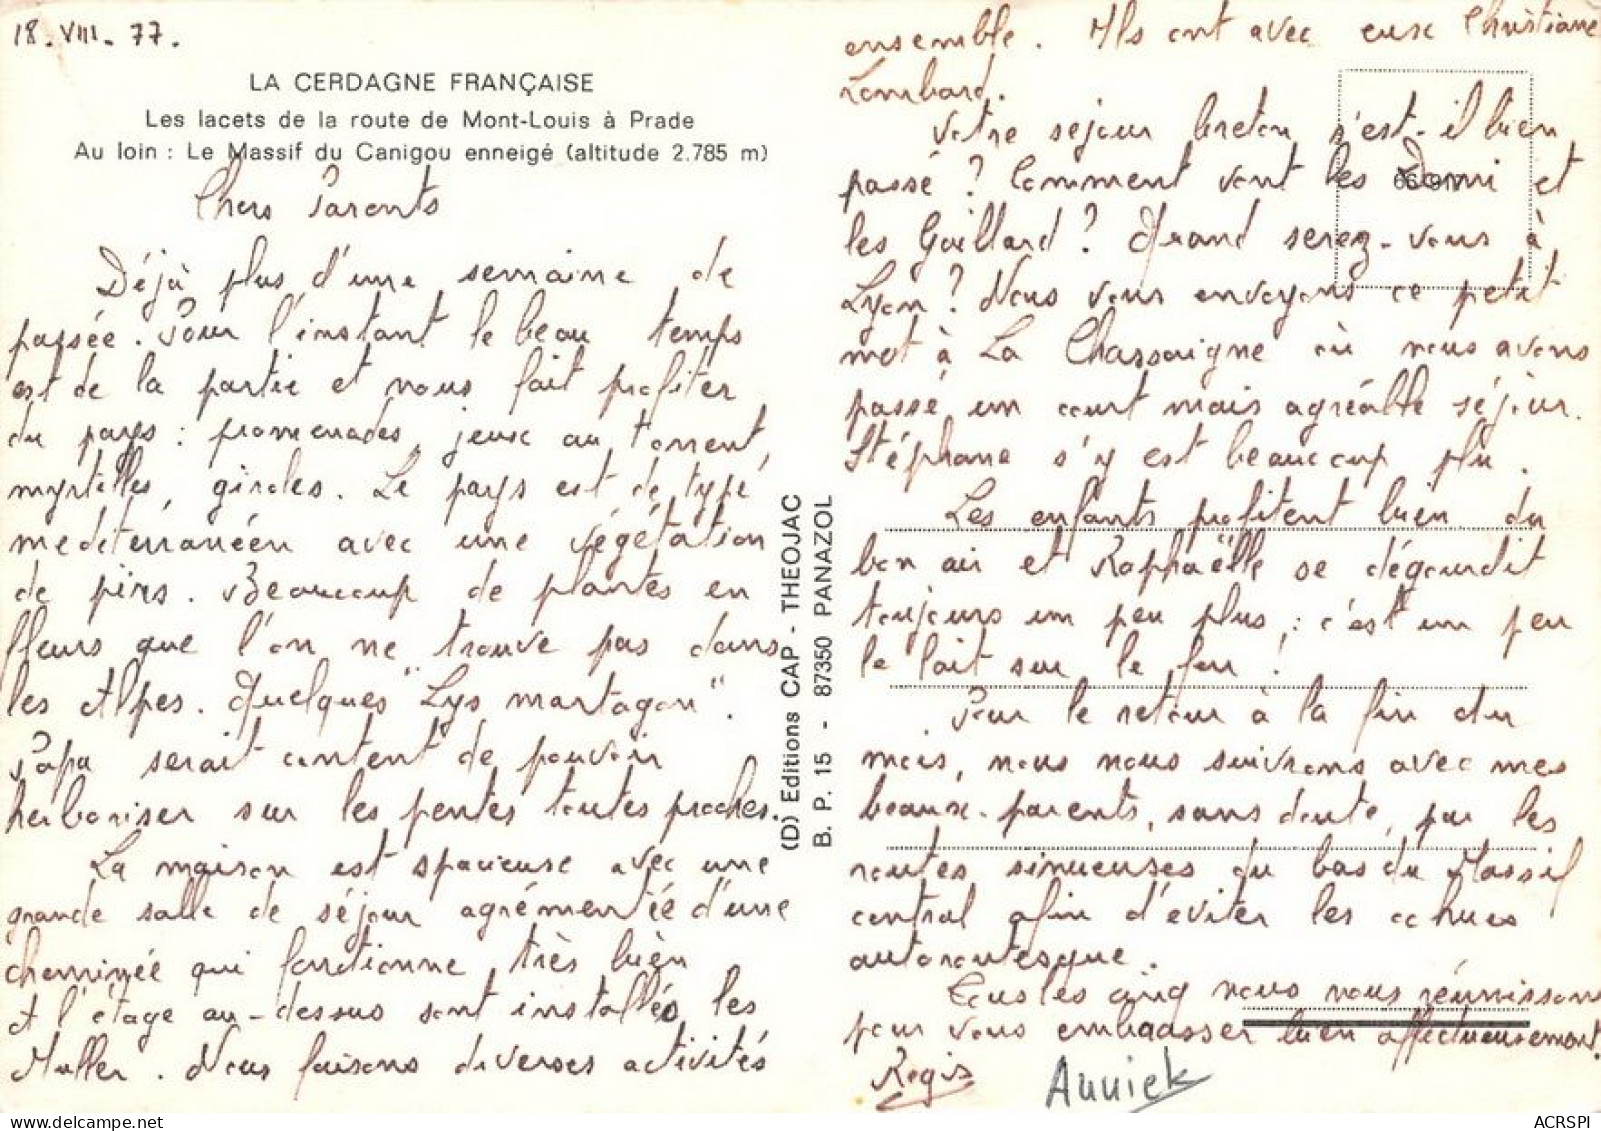 18.VIII.77.
LA CERDAGNE FRANÇAISE
Les lacets de la route de Mont-Louis à Prade
Au loin : Le Massif du Canigou enneigé (altitude 2.785 m)
Chers Parents
Déjà plus d'une semaine de
passée. Pour l'instant le beau temps
est de la partie et nous fait profiter
du pays : promenades, jeux au torrent,
myrtilles, giroles. Le pays est de type
mediterranéen avec une végétation
de pins. Beaucoup de plantes en
fleurs que l'on ne trouve pas dans
les Alpes. Quelques "Lys martagon".
Papa serait content de pouvoir
herboriser sur les pentes toutes proches.
La maison est spacieuse avec une
grande salle de séjour agrémentée d'une
cheminée qui fonctionne très bien
et l'étage au-dessus sont installés les
Muller. Nous faisons diverses activités
(D) Editions CAP - THEOJAC
B. P. 15 - 87350 PANAZOL
ensemble. Ils ont avec eux Christiane
Lombard.
Votre sejour breton s'est-il bien
passé ? Comment vont les Domi et
les Gaillard ? Quand serez-vous à
Lyon ? Nous vous envoyons ce petit
mot à La Chassaigne où nous avons
passé un court mais agréable séjour.
Stéphane s'y est beaucoup plu.
Les enfants profitent bien du
bon air et Raphaëlle se dégourdit
toujours un peu plus ; c'est un peu
le lait sur le feu !
Pour le retour à la fin du
mois, nous nous suivrons avec mes
beaux-parents, sans doute, par les
routes sinueuses du bas du Massif
central afin d'éviter les cohues
autoroutesque.
Tous les cinq nous nous réunissons
pour vous embrasser bien affectueusement.
Régis Annick
ACRSPI